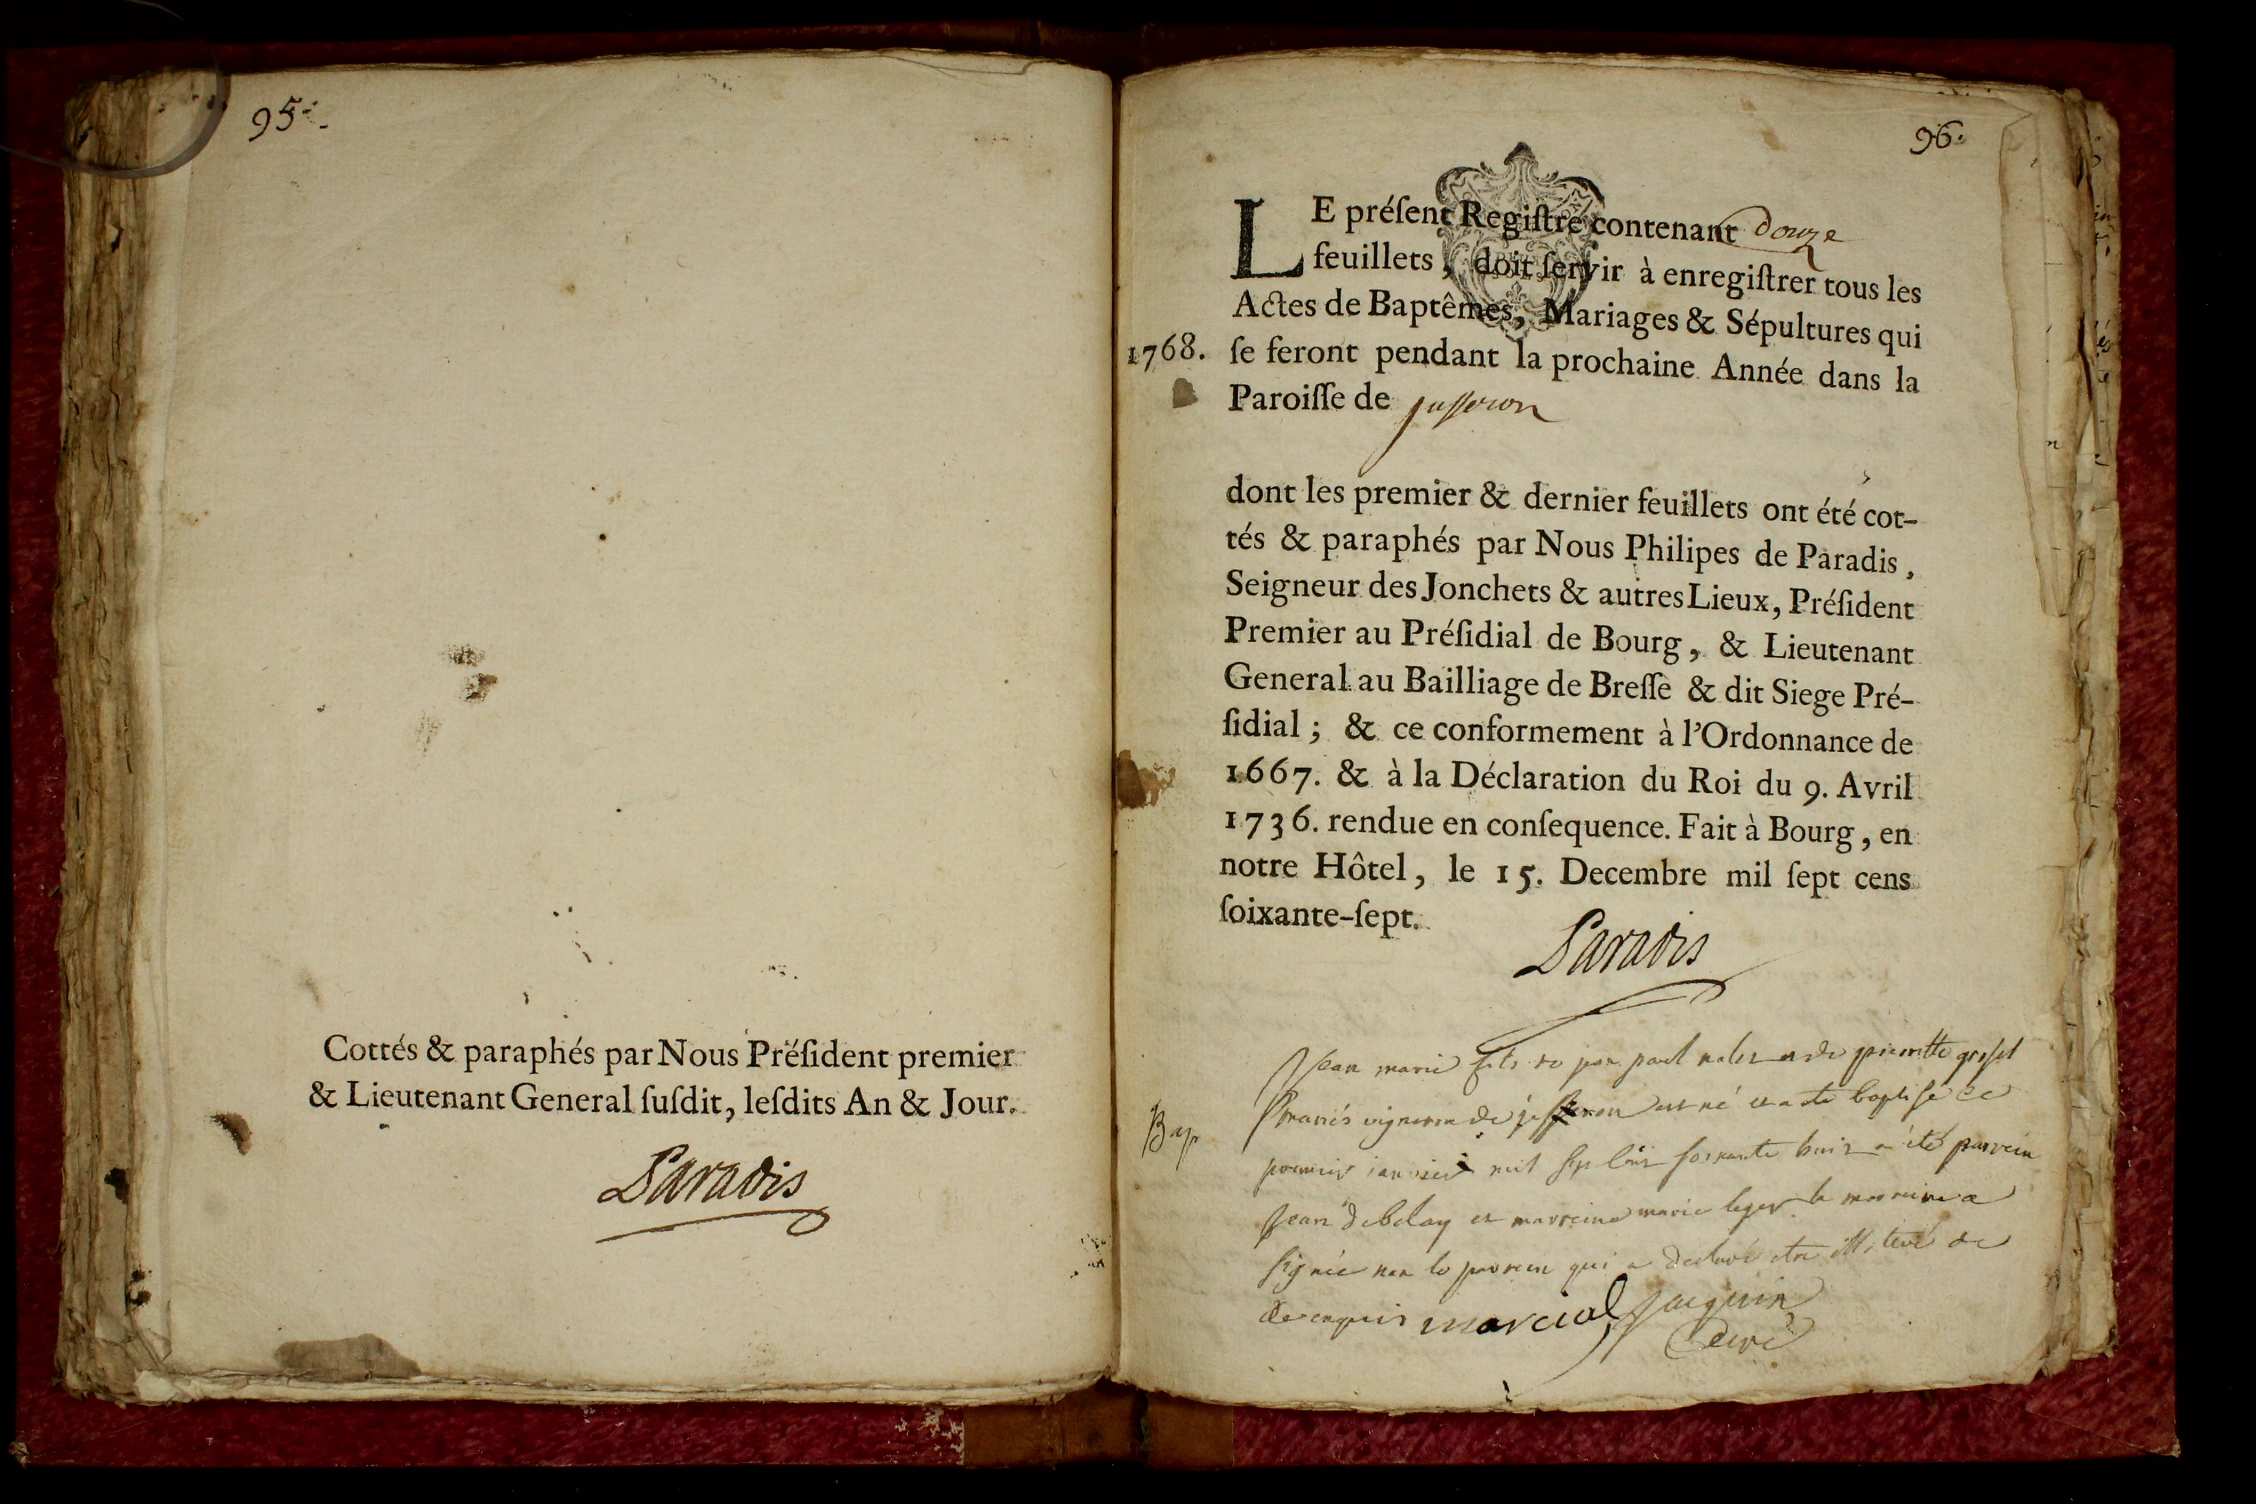 95.
Cottés & paraphés par Nous Préſident premier
& Lieutenant General ſuſdit, leſdits An & Jour.
Paradis
96.
LE préſent Regiſtre contenant douze
feuillets, doit ſervir à enregiſtrer tous les
Actes de Baptêmes, Mariages & Sépultures qui
1768. ſe feront pendant la prochaine Année dans la
Paroiſſe de jusseron
dont les premier & dernier feuillets ont été cot-
tés & paraphés par Nous Philipes de Paradis,
Seigneur des Jonchets & autres Lieux, Préſident
Premier au Préſidial de Bourg, & Lieutenant
General au Bailliage de Breſſe & dit Siege Pré-
ſidial; & ce conformement à l'Ordonnance de
1667. & à la Déclaration du Roi du 9. Avril
1736. rendue en conſequence. Fait à Bourg, en
notre Hôtel, le 15. Decembre mil ſept cens
ſoixante-ſept.
Paradis
Jean marie fils paul et de
Bap
mariés vigneron de est né et a ete baptisé ce
premier janvier mil sep cens soixante huit a été parrein
Jean debelay et marreine marie leger la marreine a
signée non le parrein qui a declaré etre illiteré de
de enquis marcial Jacquin
Curé